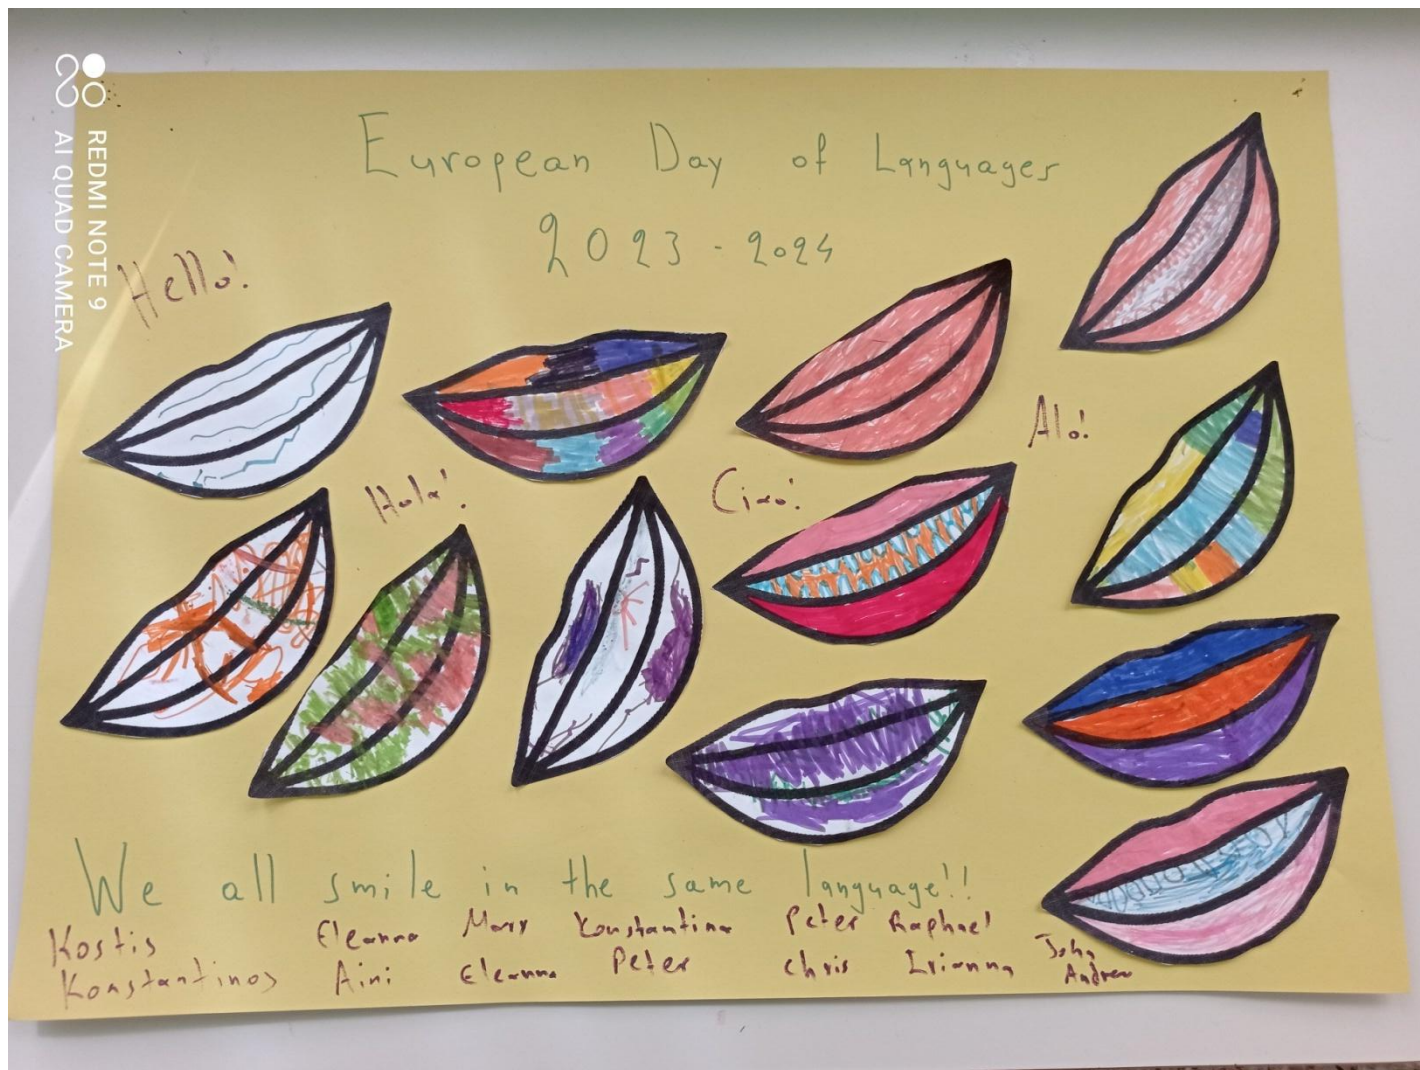 REDMI NOTE 9
AI QUAD CAMERA
European Day of Languages
2023 - 2024
Hello!
Alo!
Hola!
Ciao!
We all smile in the same language!!
Kostis Eleanna Mary Konstantina Peter Raphael John
Konstantinos Aini Eleanna Peter Chris Irianna Andrew